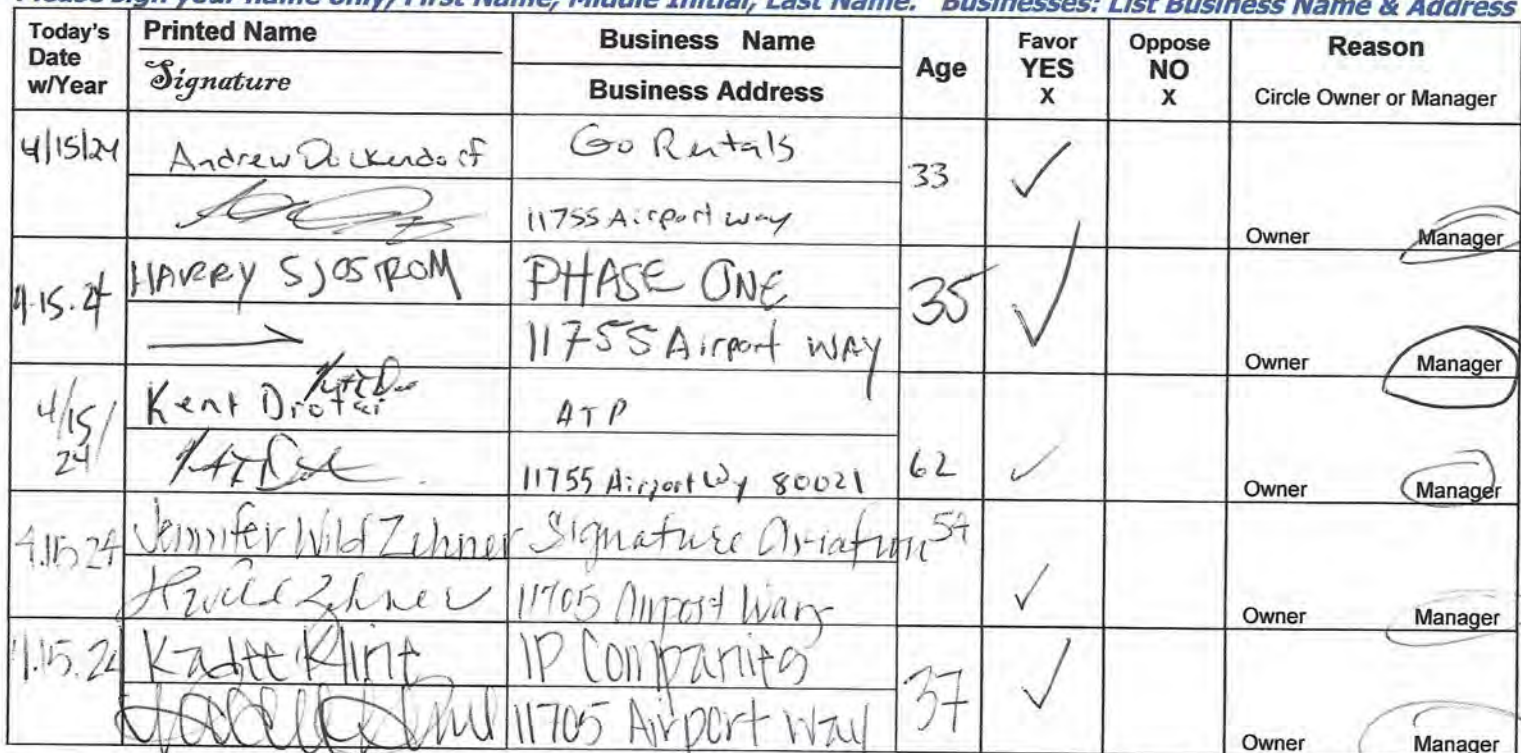 Please sign your name only/First Name, Middle Initial, Last Name. Businesses: List Business Name & Address
Today's Date w/Year Printed Name Signature Business Name Business Address Age Favor YES X Oppose NO X Reason Circle Owner or Manager
4/15/24 Andrew Dockendorf Go Rentals 33 ✓
11755 Airport way Owner Manager
4.15.24 HARRY SJOSTROM PHASE ONE 35 ✓
11755 Airport WAY Owner Manager
4/15/24 Kent ATP
11755 Airport Wy 80021 62 ✓ Owner Manager
4.15.24 Jennifer Wild Zehner Signature Aviation 54
11705 Airport Way ✓ Owner Manager
4.15.24 Kadee Klint IP Companies 37 ✓
11705 Airport Way Owner Manager